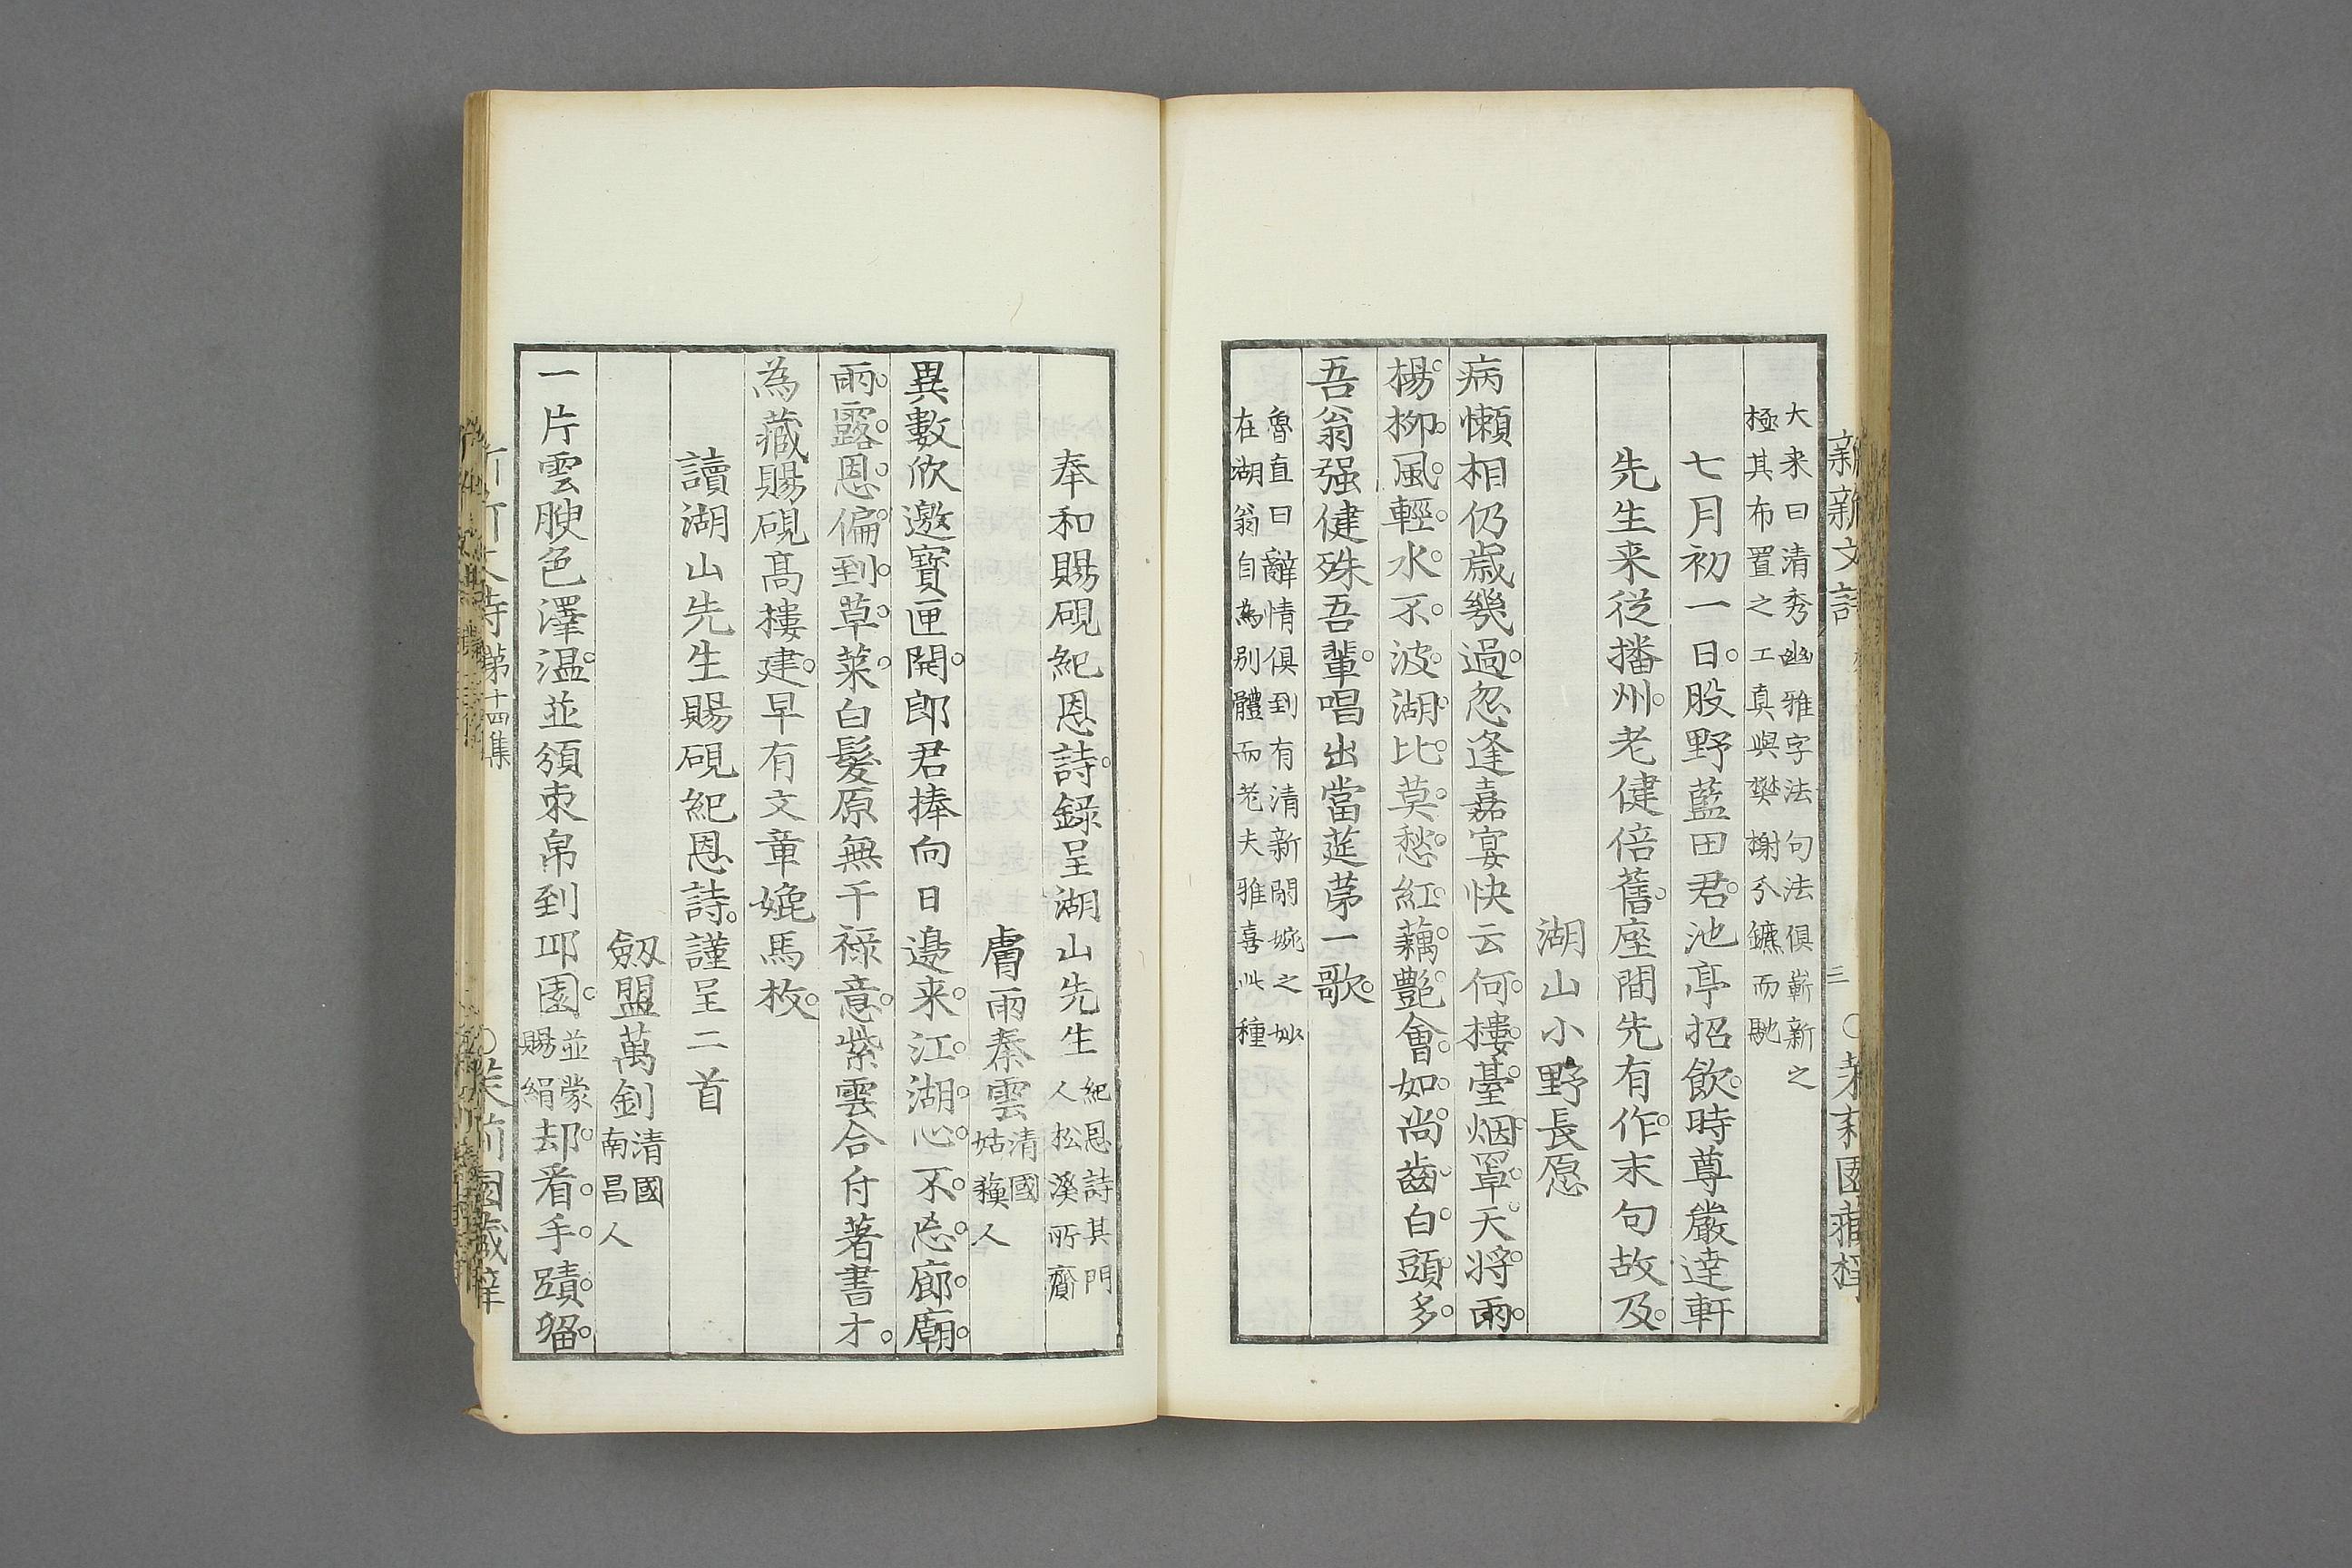 大来曰清秀幽雅字法句法俱嶄新之
極其布置之工真與樊榭分鑣而馳
七月初一日。股野藍田君。池亭招飲。時尊嚴達軒
先生来從播州。老健倍舊。座間先有作。末句故及。
湖山小野長愿
病懶相仍歳幾過。忽逢嘉宴快云何。樓。臺。烟。罩。天。将。雨。
楊。柳。風。輕。水。不。波。湖。比。莫。愁。紅。藕。艷。會。如。尚。齒。白。頭。多。
吾翁强健殊吾輩。唱出當莚苐一歌。
魯直曰辭情俱到有清新閑婉之妙
在湖翁自為別體而老夫雅喜此種
奉和賜硯紀恩詩。錄呈湖山先生
紀恩詩其門
人松溪所齎
膚雨秦雲
清國
姑蘓人
異數欣邀寶匣開。郎君捧向日邊来。江。湖。心。不。忘。廊。廟。
雨。露。恩。偏。到。草。莱。白髮原無干祿意。紫雲合付著書才。
為藏賜硯高樓建。早有文章媲馬枚。
讀湖山先生賜硯紀恩詩。謹呈二首
劔盟萬釗
清國
南昌人
一片雲腴色澤温。並頒束帛到邱園。
並蒙
賜絹
却。看。手。蹟。留。
第十四集
三